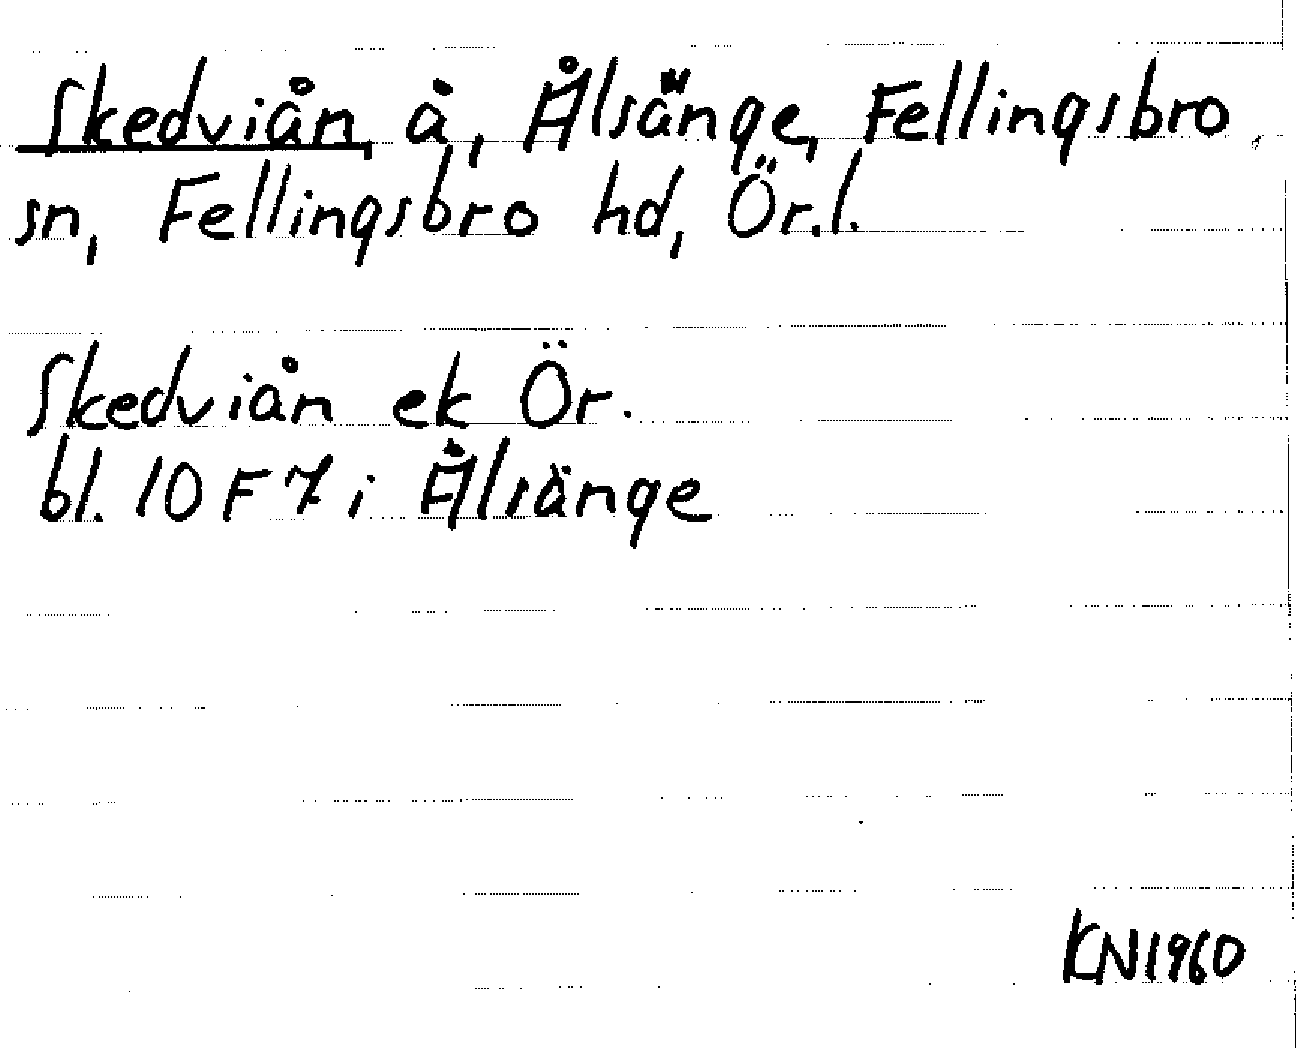 Skedviån, å, Ålsänge, Fellingsbro
sn, Fellingsbro hd, Ör.l.
Skedviån ek Ör.
bl. 10 F 7 i Ålsänge
KN1960